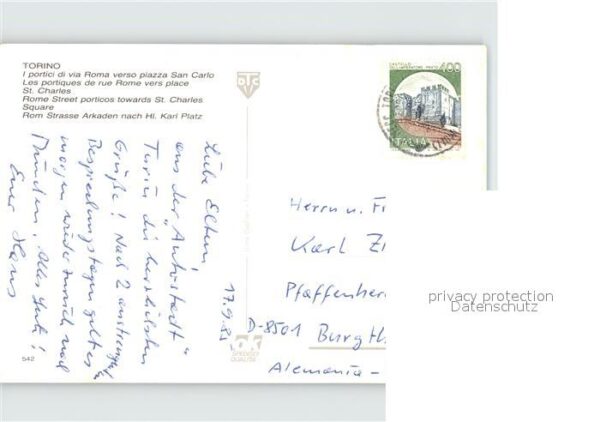 TORINO
I portici di via Roma verso piazza San Carlo
Les portiques de rue Rome vers place
St. Charles
Rome Street porticos towards St. Charles
Square
Rom Strasse Arkaden nach Hl. Karl Platz
DTC
CASTELLO
DELL'IMPERATORE PRATO
400
ITALIA
17.9.85
Liebe Eltern,
aus der "Autostadt"
Turin die herzlichsten
Grüße! Nach 2 anstrengenden
Besprechungstagen geht es
morgen wieder zurück nach
München. Alles Gute!
Euer Hans
Herrn u. F
Karl Z
Pfaffenher
D-8501 Burgth
Alemania -
542
OK
privacy protection
Datenschutz